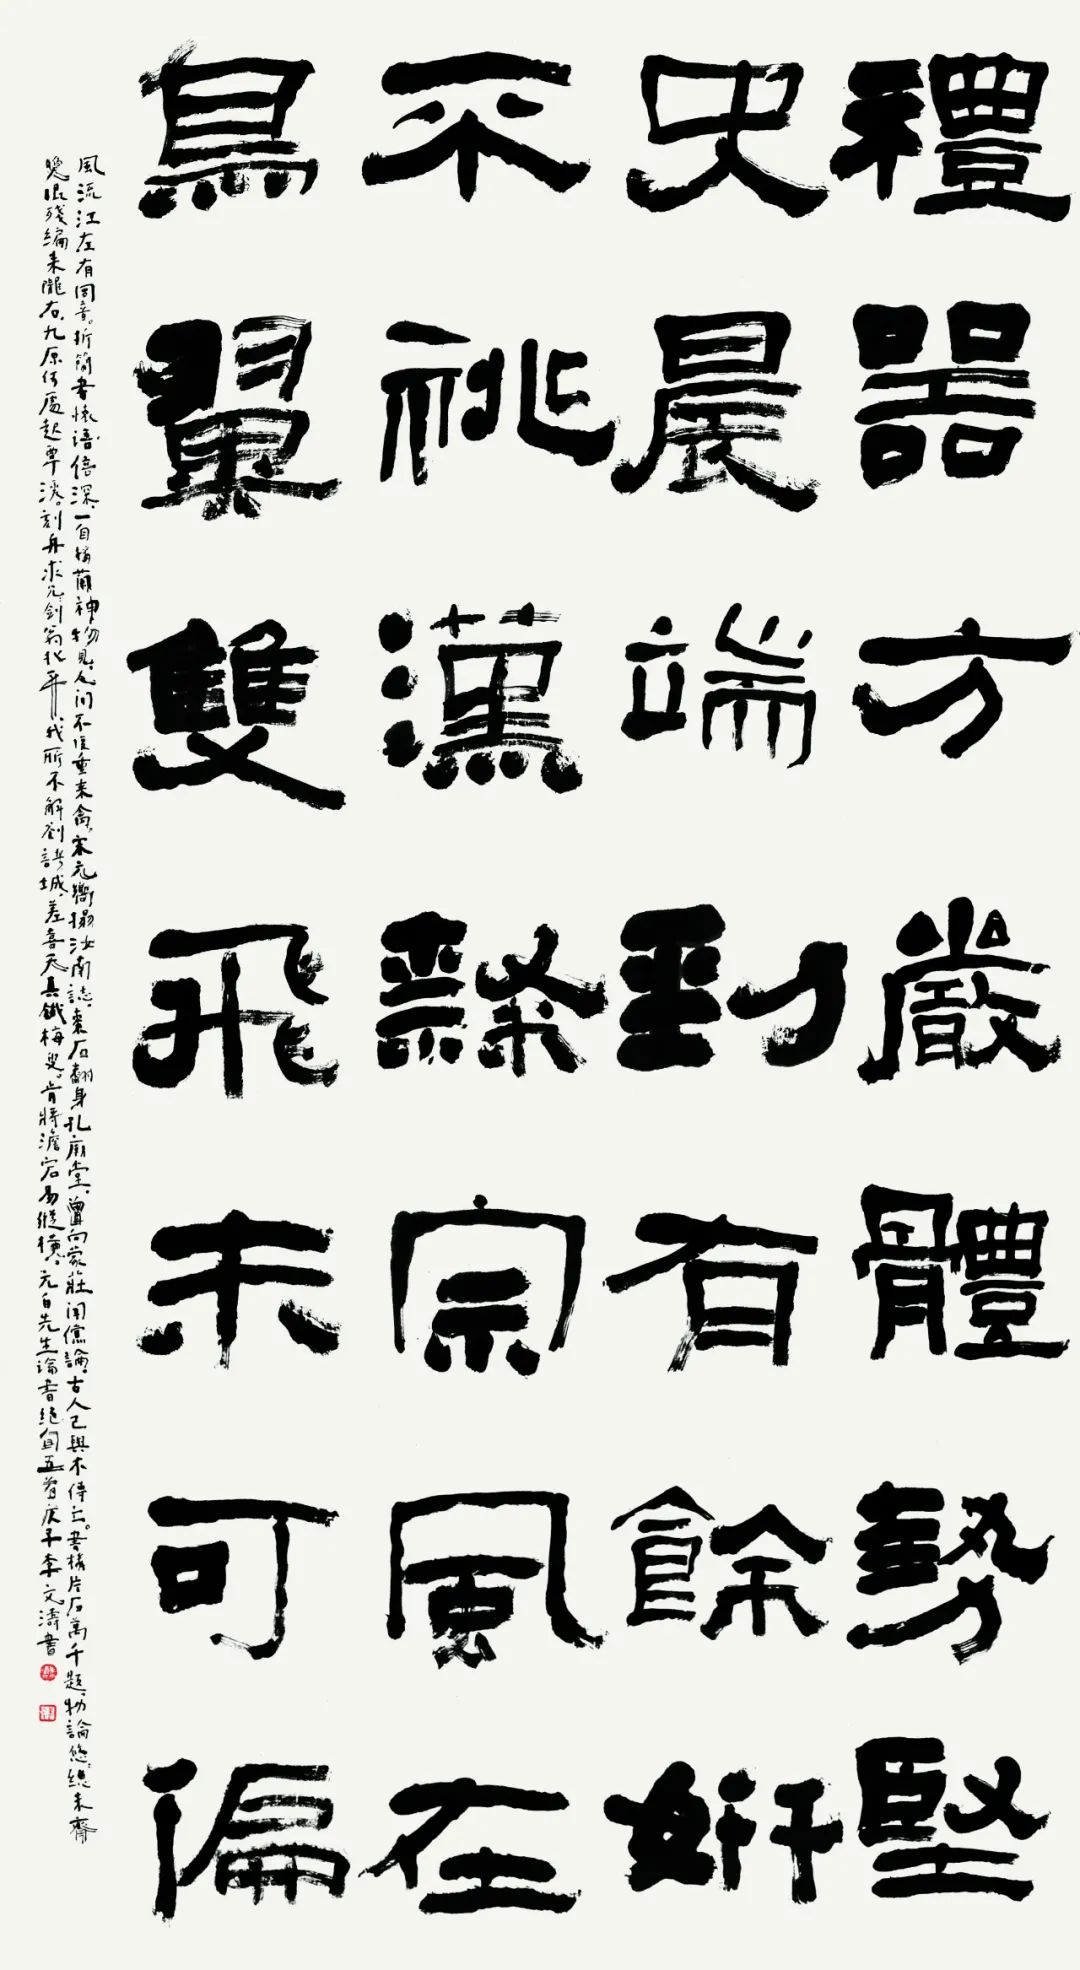 禮器方嚴體勢堅
史晨端勁有餘妍
不祧漢隸宗風在
鳥翼雙飛未可偏
風流江左有同音折簡書懷語倍深一自樓蘭神物見人間不復重來禽宋元嚮搨汝南誌棗石翻身孔廟堂曾向蒙莊聞儒論古人已與不傳亡書樓片石萬千題物論悠悠總未齊
照眼殘編來隴右九原何處起覃溪刻舟求劍翁北平我所不解劉諸城差喜天真鐵梅叟肯將澹宕易縱橫元白先生論書絕句五首庚子李文濤書